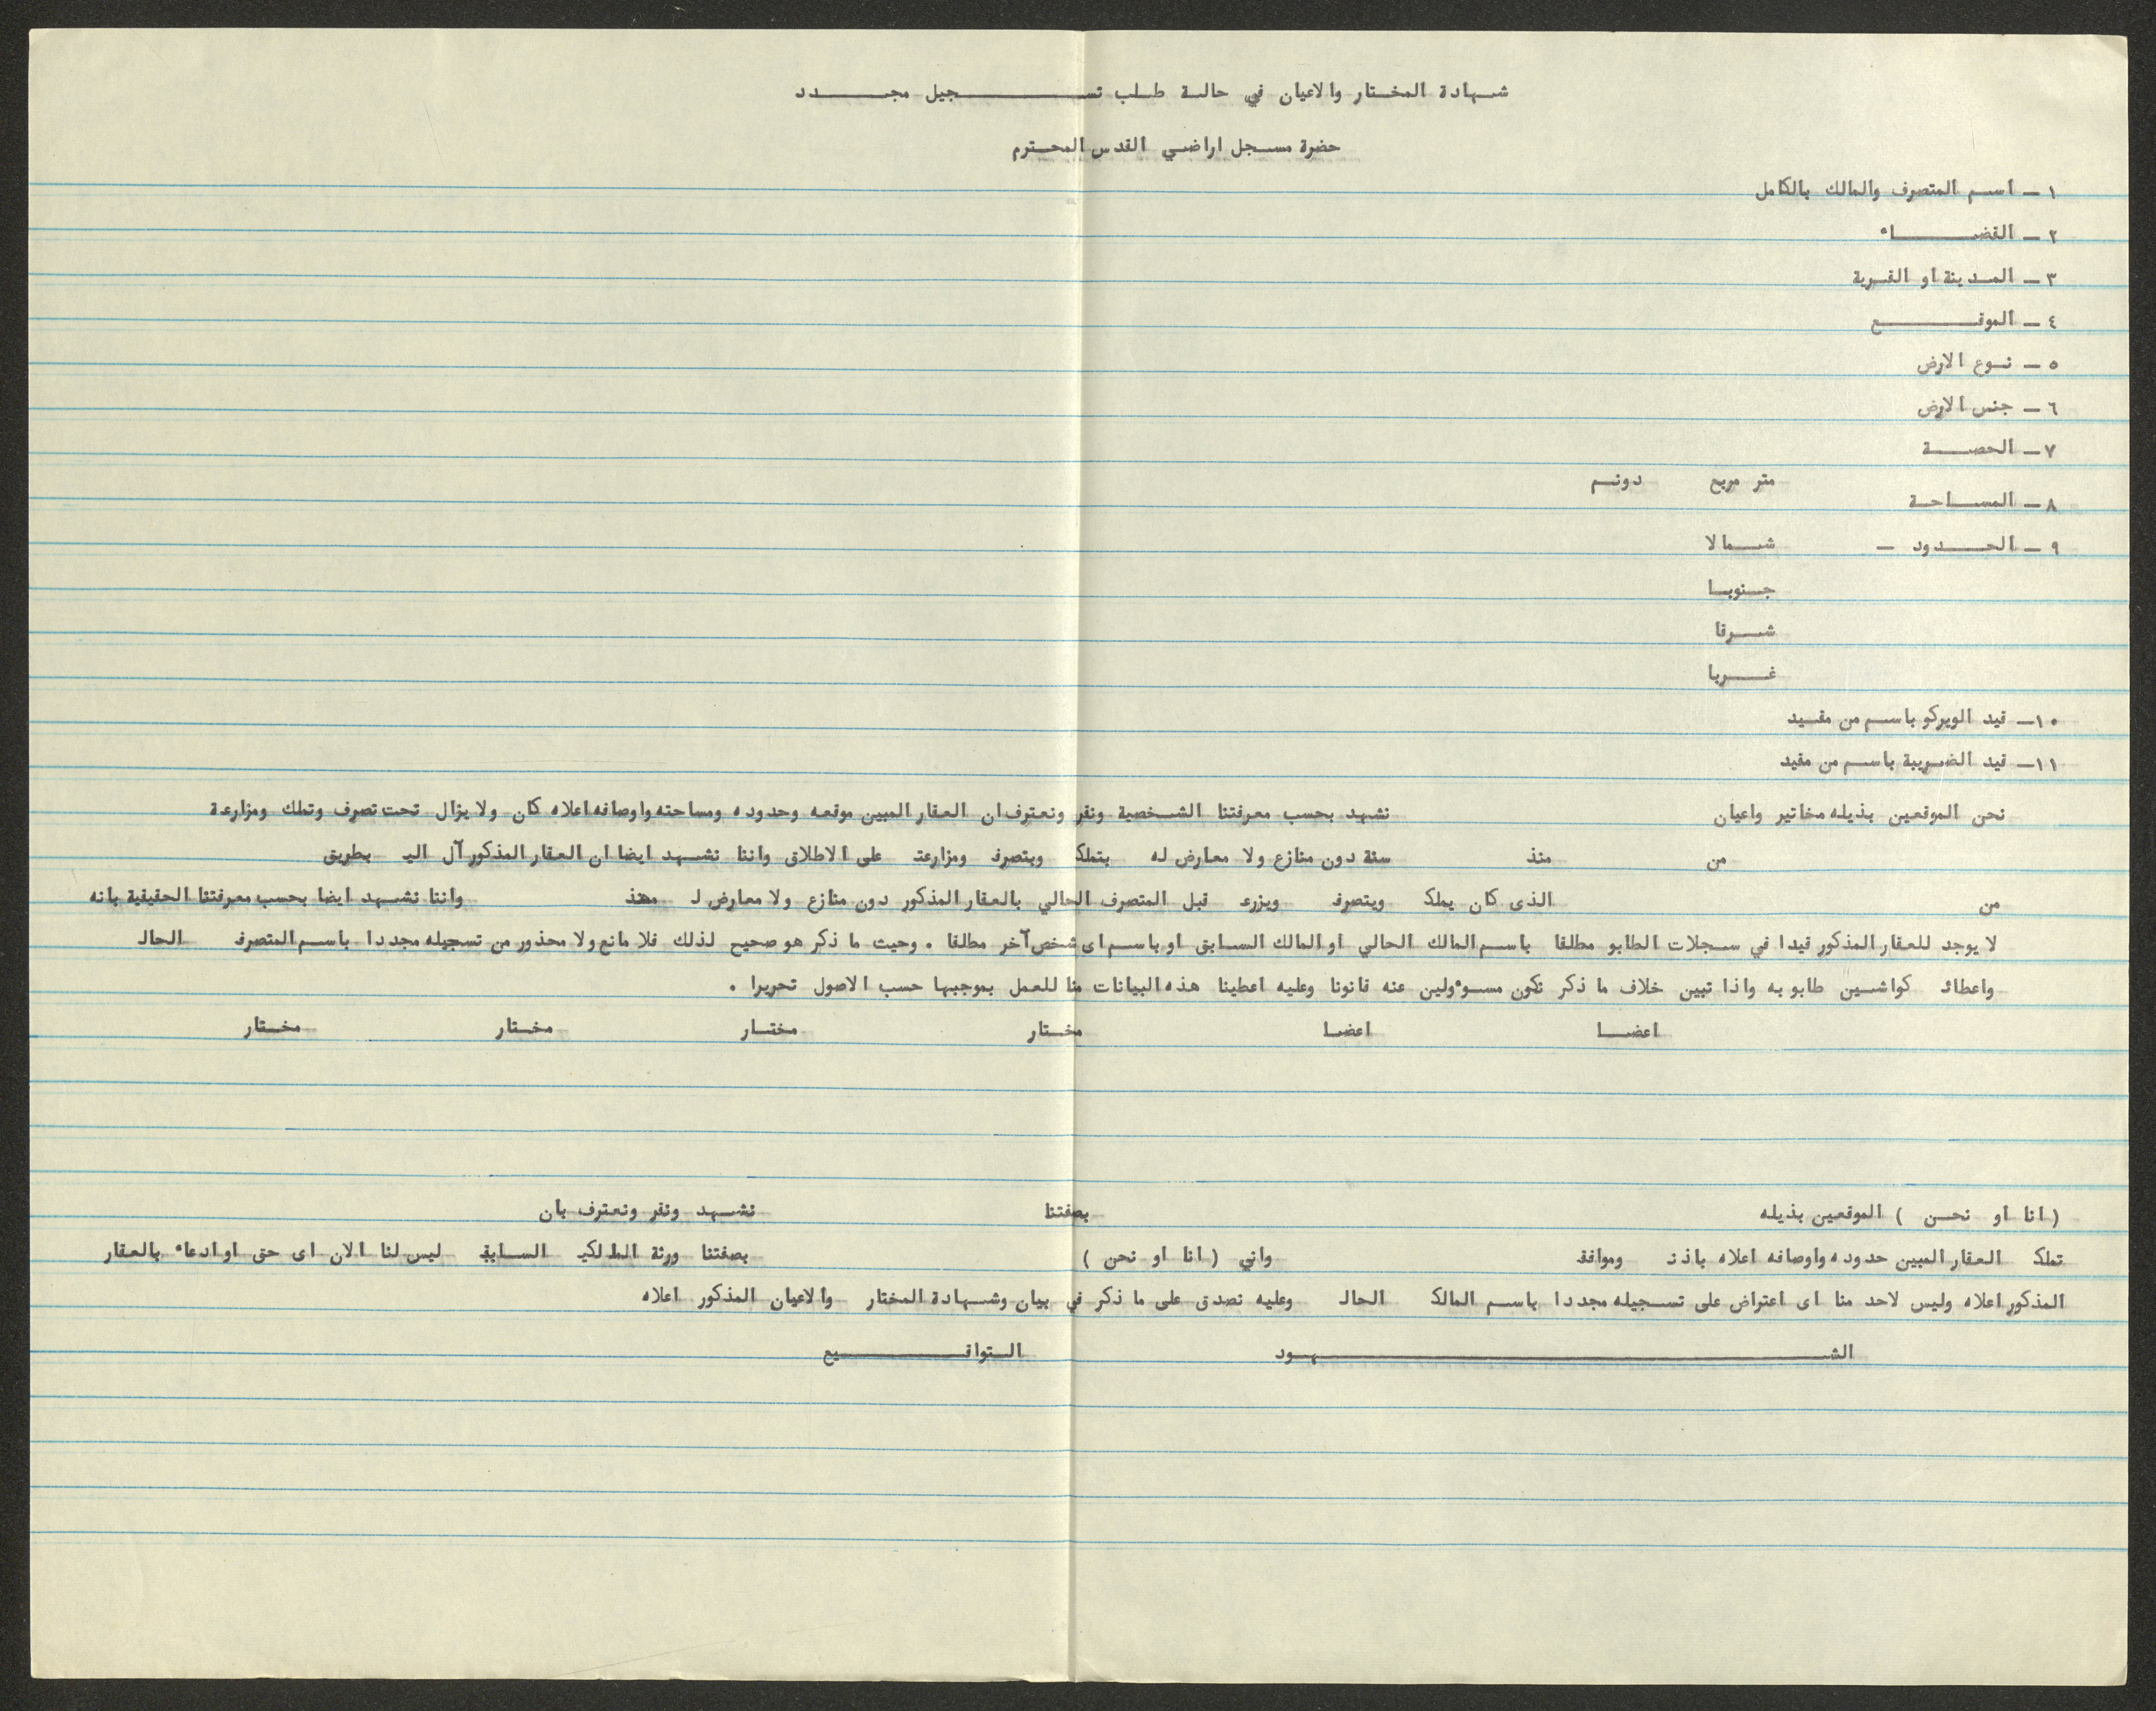 شهادة المختار والاعيان في حالة طلب تسجيل مجدد
حضرة مسجل اراضي القدس المحترم
١ ـ اسم المتصرف والمالك بالكامل
٢ ـ القضاء
٣ ـ المدينة او القرية
٤ ـ الموقع
٥ ـ نوع الارض
٦ ـ جنس الارض
٧ ـ الحصة
متر مربع دونم
٨ ـ المساحة
٩ ـ الحدود ـ شمالا
جنوبا
شرقا
غربا
١٠ـ قيد الويركو باسم من مقيد
١١ـ قيد الضريبة باسم من مقيد
نحن الموقعين بذيله مخاتير واعيان نشهد بحسب معرفتنا الشخصية ونقر ونعترف ان العقار المبين موقعه وحدوده ومساحته واوصافه اعلاه كان ولا يزال تحت تصرف وتملك ومزارعة
من منذ سنة دون منازع ولا معارض له بتملكـ وبتصرفـ ومزارعتـ على الاطلاق واننا نشهد ايضا ان العقار المذكور آل اليـ بطريق
من الذى كان يملكـ ويتصرفـ ويزرعـ قبل المتصرف الحالي بالعقار المذكور دون منازع ولا معارض لـ منذ واننا نشهد ايضا بحسب معرفتنا الحقيقية بانه
لا يوجد للعقار المذكور قيدا في سجلات الطابو مطلقا باسم المالك الحالي او المالك السابق او باسم اى شخص آخر مطلقا . وحيث ما ذكر هو صحيح لذلك فلا مانع ولا محذور من تسجيله مجددا باسم المتصرفـ الحالـ
واعطائـ كواشين طابو به واذا تبين خلاف ما ذكر نكون مسوءولين عنه قانونا وعليه اعطينا هذه البيانات منا للعمل بموجبها حسب الاصول تحريرا .
اعضا اعضا مختار مختار مختار مختار
( انا او نحن ) الموقعين بذيله بصفتنا نشهد ونقر ونعترف بان
تملكـ العقار المبين حدوده واوصافه اعلاه باذنـ وموافقـ واني ( انا او نحن ) بصفتنا ورثة المالكيـ السابقـ ليس لنا الان اى حق او ادعاء بالعقار
المذكور اعلاه وليس لاحد منا اى اعتراض على تسجيله مجددا باسم المالكـ الحالـ وعليه نصدق على ما ذكر في بيان وشهادة المختار والاعيان المذكور اعلاه
الشهود التواقيع